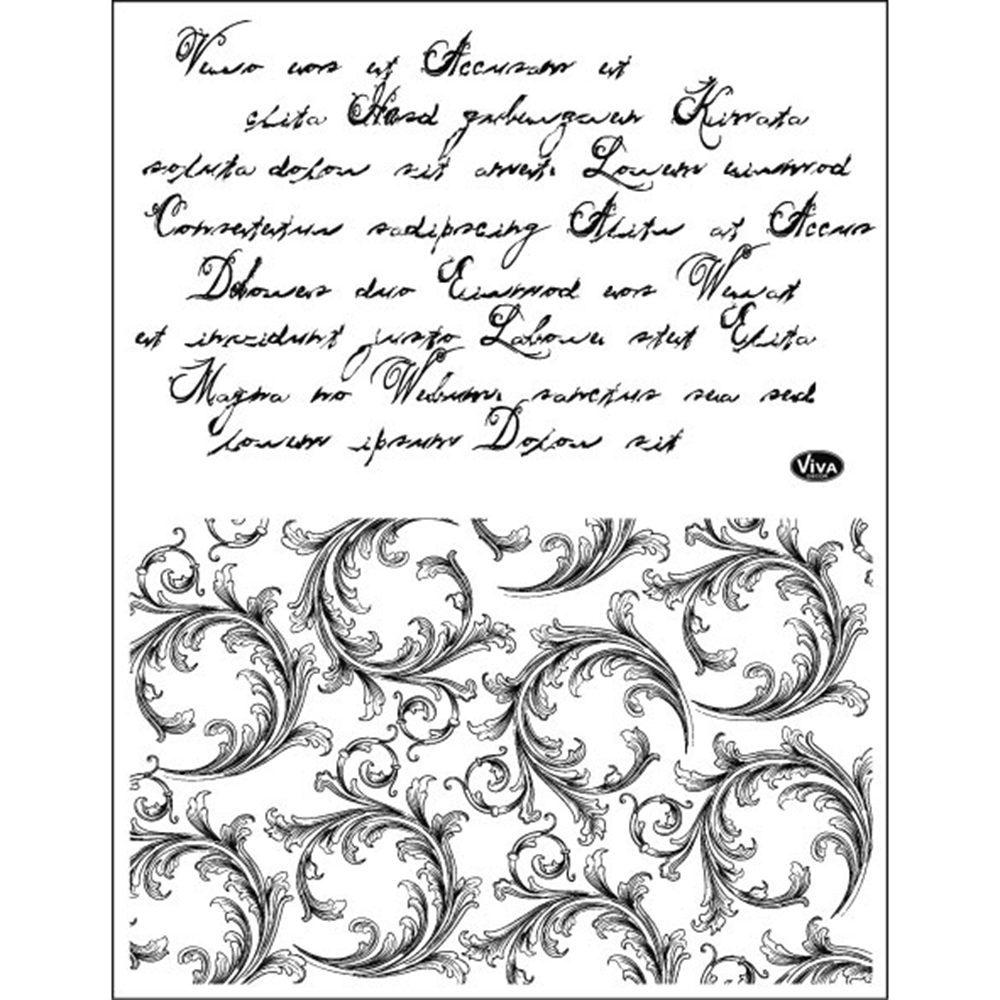 Vewo eos et Accusam et
clita Hasd gubengzen Kimata
soluta dolou sit amet. Lorem eiumod
Consetetuu sadipscing Alitu at Accus
Dolowes duo Eiumod eos Wewat
et inzidunt justo Labowe stet Elita
Magna no Webum. sanctus sea sed
lorem ipsum Dolou sit
VIVA